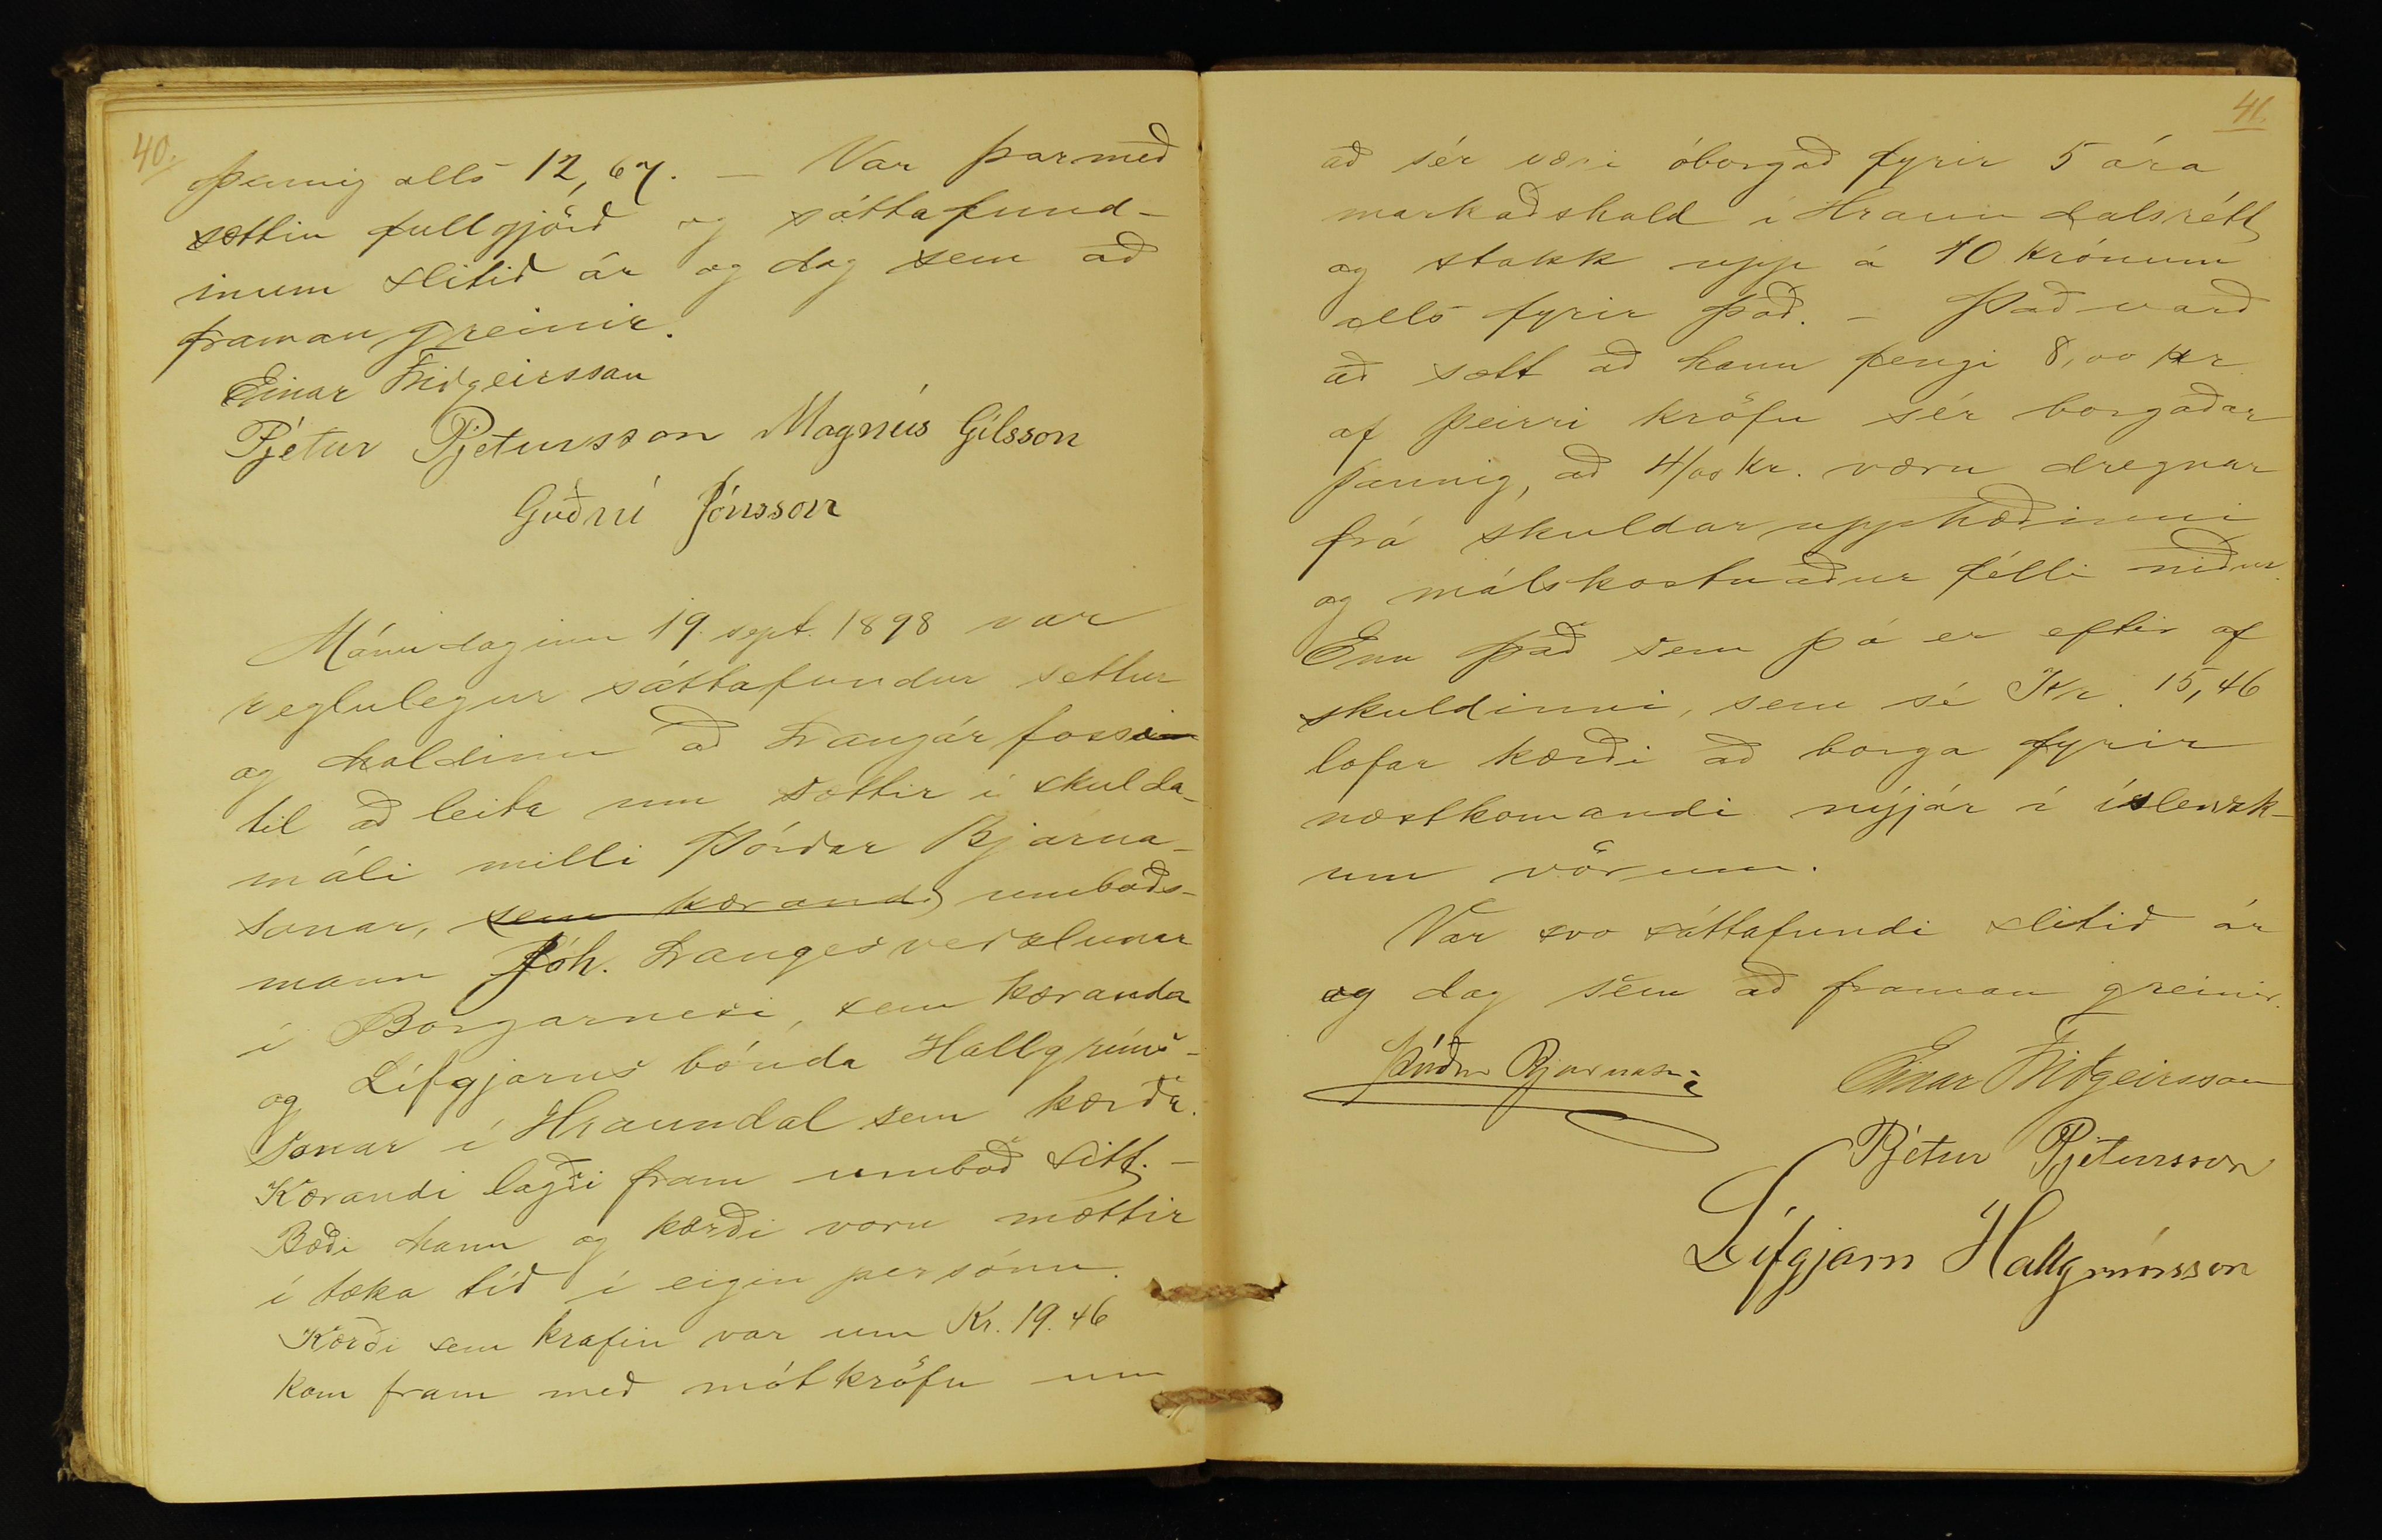 40.
þannig alls 12,67. — Var þar með
sættin fullgjörð og sáttafund-
inum slitið ár og dag sem að
framan greinir.
Einar Friðgeirsson
Pjétur Pjetursson Magnús Gílsson
Guðni Jónsson
Mánudaginn 19. sept. 1898 var
reglulegur sáttafundur settur
og haldinn að Langárfossi
til að leita um sættir í skulda-
máli milli Þórðar Bjarna-
sonar, sem kærandi umboðs-
mann Jóh. Langes verzlunar
í Borgarnesi, sem kæranda
og Lífgjarns bónda Hallgríms-
sonar í Hraundal sem kærða.
Kærandi lagði fram umboð sitt. —
Bæði hann og kærði voru mættir
í tæka tíð í eigin persónu.
Kærði sem krafin var um Kr. 19.46
kom fram með mótkröfu um
41.
að sér væri óborgað fyrir 5 ára
markaðshald í Hraundalsrétt
og stakk upp á 10 krónum
alls fyrir það. — Það varð
að sætt að hann fengi 8,00 kr
af þeirri kröfu sér borgaðar
þannig, að 4/00 kr. væru dregnar
frá skuldarupphæðinni
og málskostnaður félli niður.
Enn það sem þá er eftir af
skuldinni, sem sé Kr. 15,46
lofar kærði að borga fyrir
næstkomandi nýjár í íslenzk-
um vörum.
Var svo sáttafundi slitið ár
og dag sem að framan greinir.
Þórður Bjarnason Einar Friðgeirsson
Pjétur Pjetursson
Lífgjarn Hallgrímsson